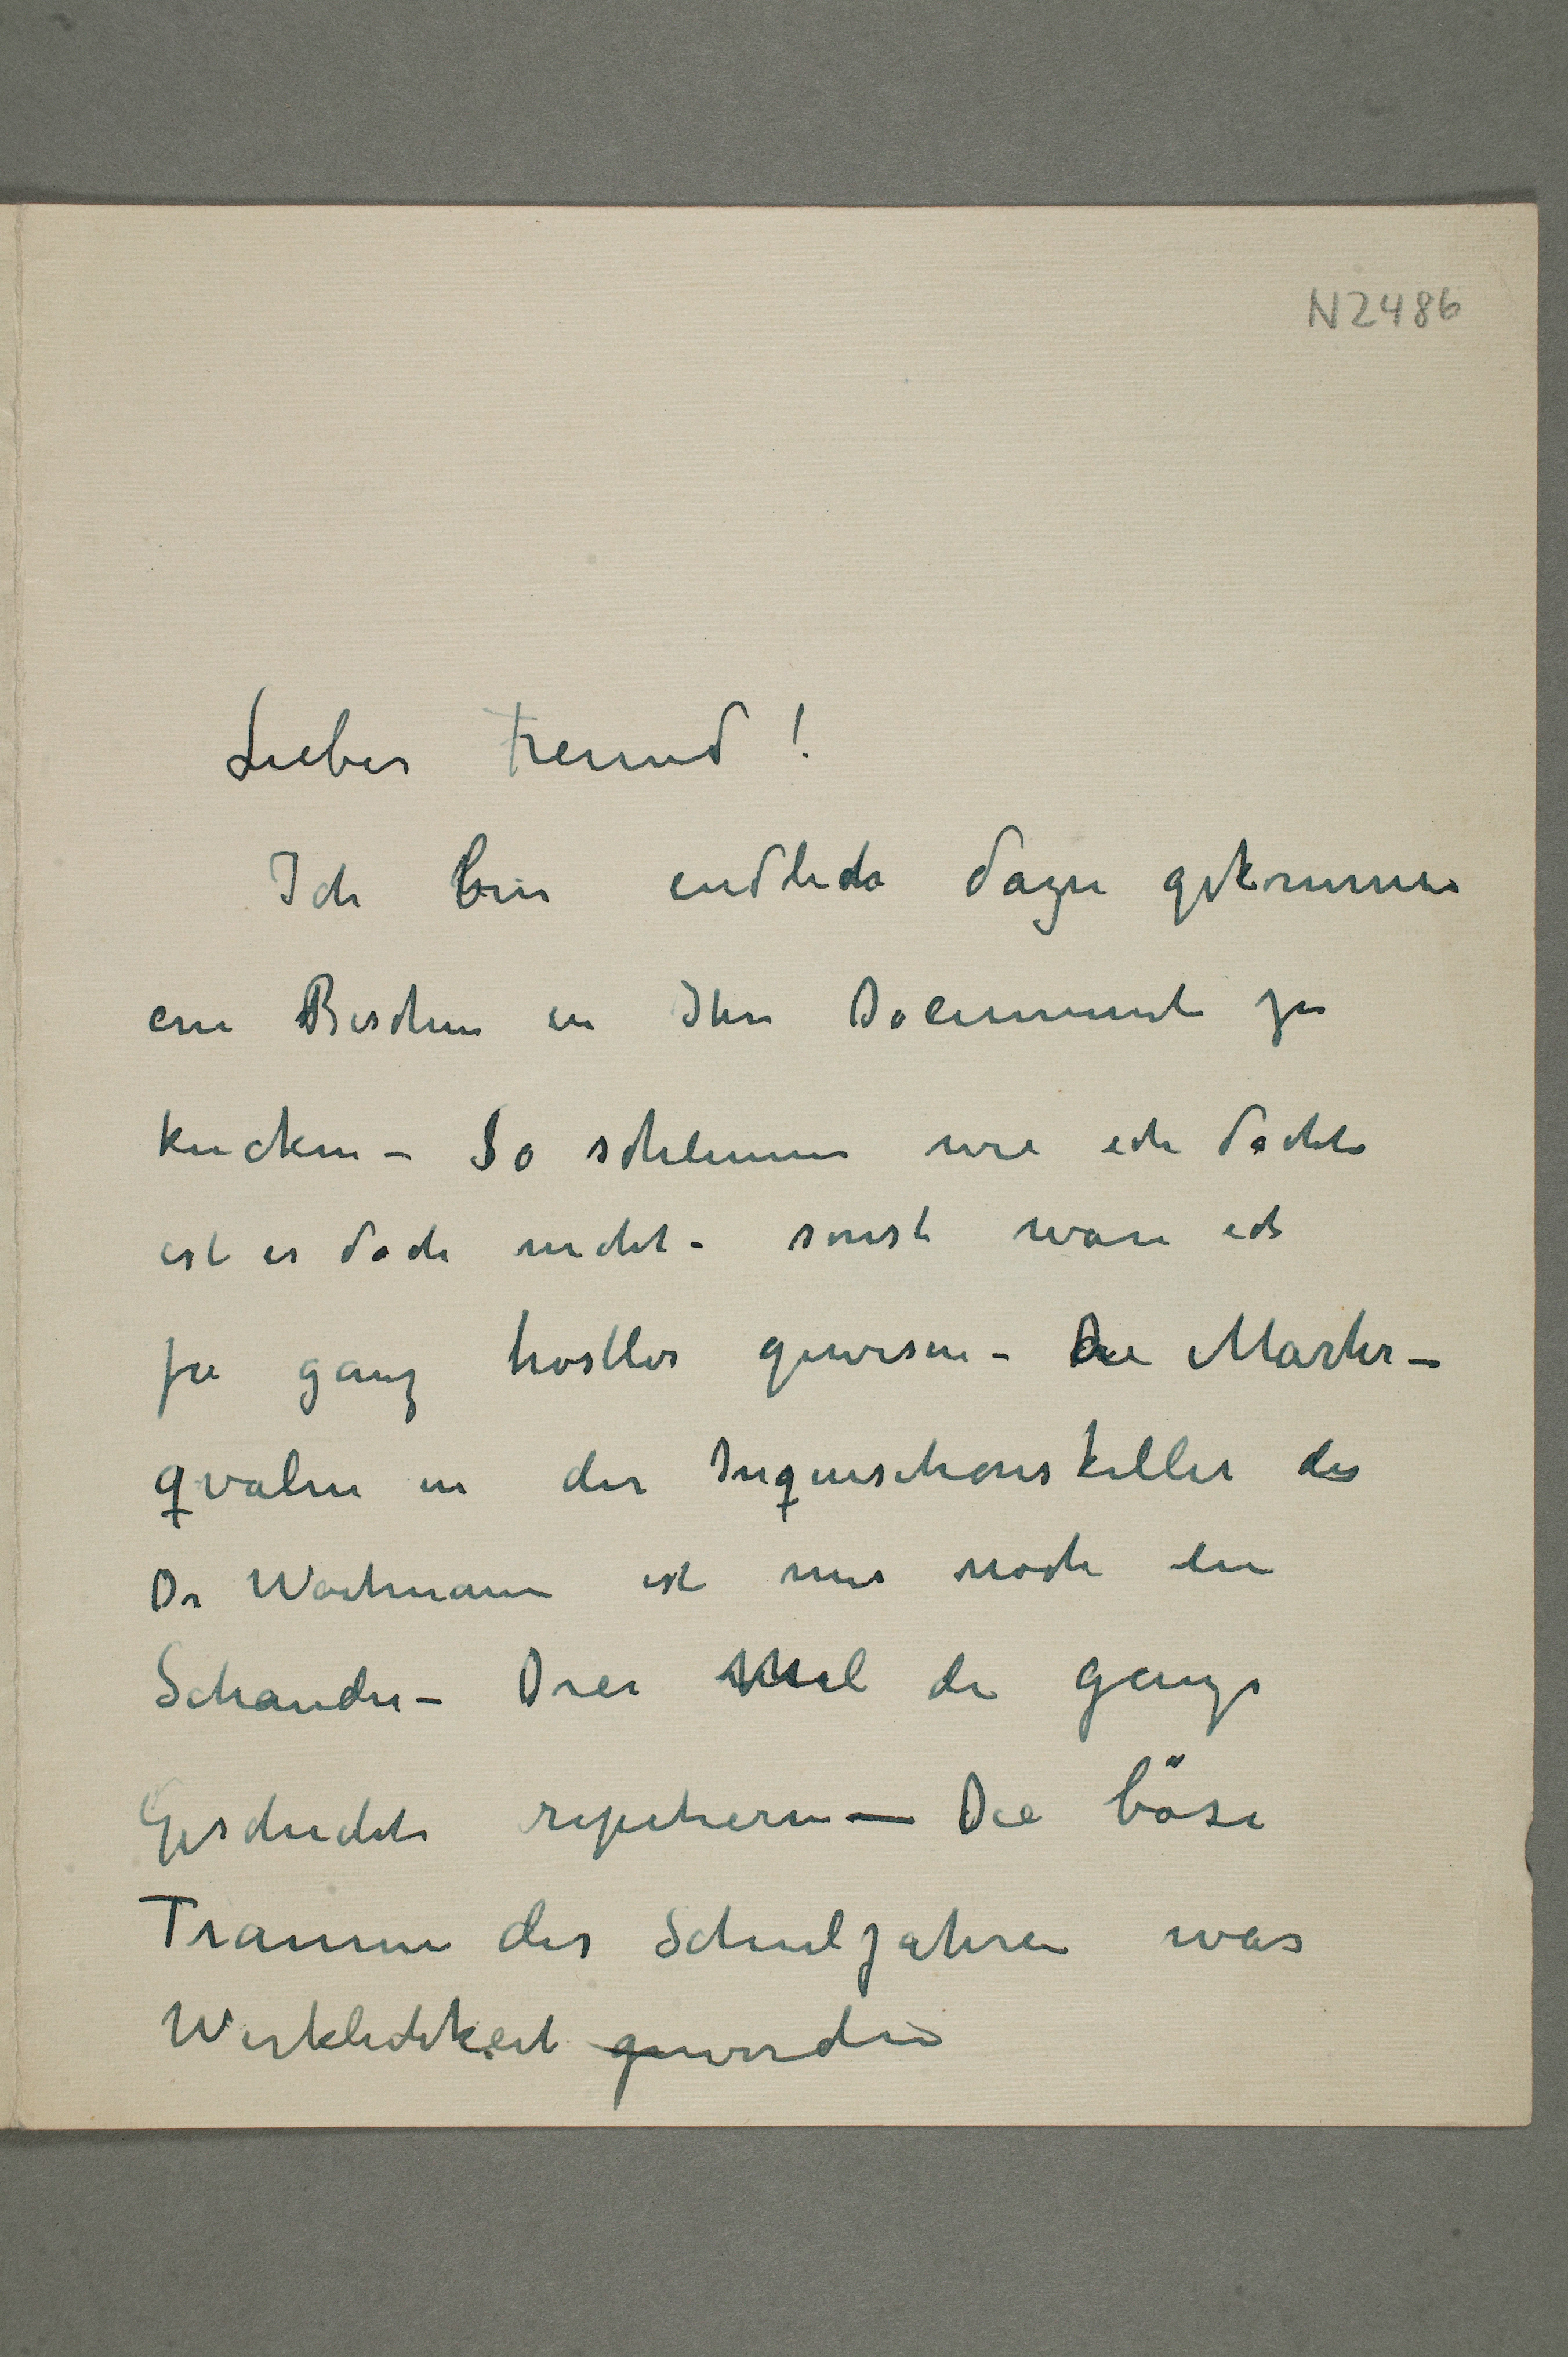 N 2486
Lieber Freund!
Ich bin endlich dazu gekommen
ein Bischen in Ihre Document zu
kucken – So schlimm wie ich dachte
ist es doch nicht – sonst wäre ich
ja ganz trostlos gewesen – Die Marter–
qvalen in der Inquisitionskeller des
Dr Wortmann ist mir noch ein
Schauder – Drei Mal die ganze
Geschichte repetieren — Die böse
Träume der Schuljahren war
Wirklichkeit geworden